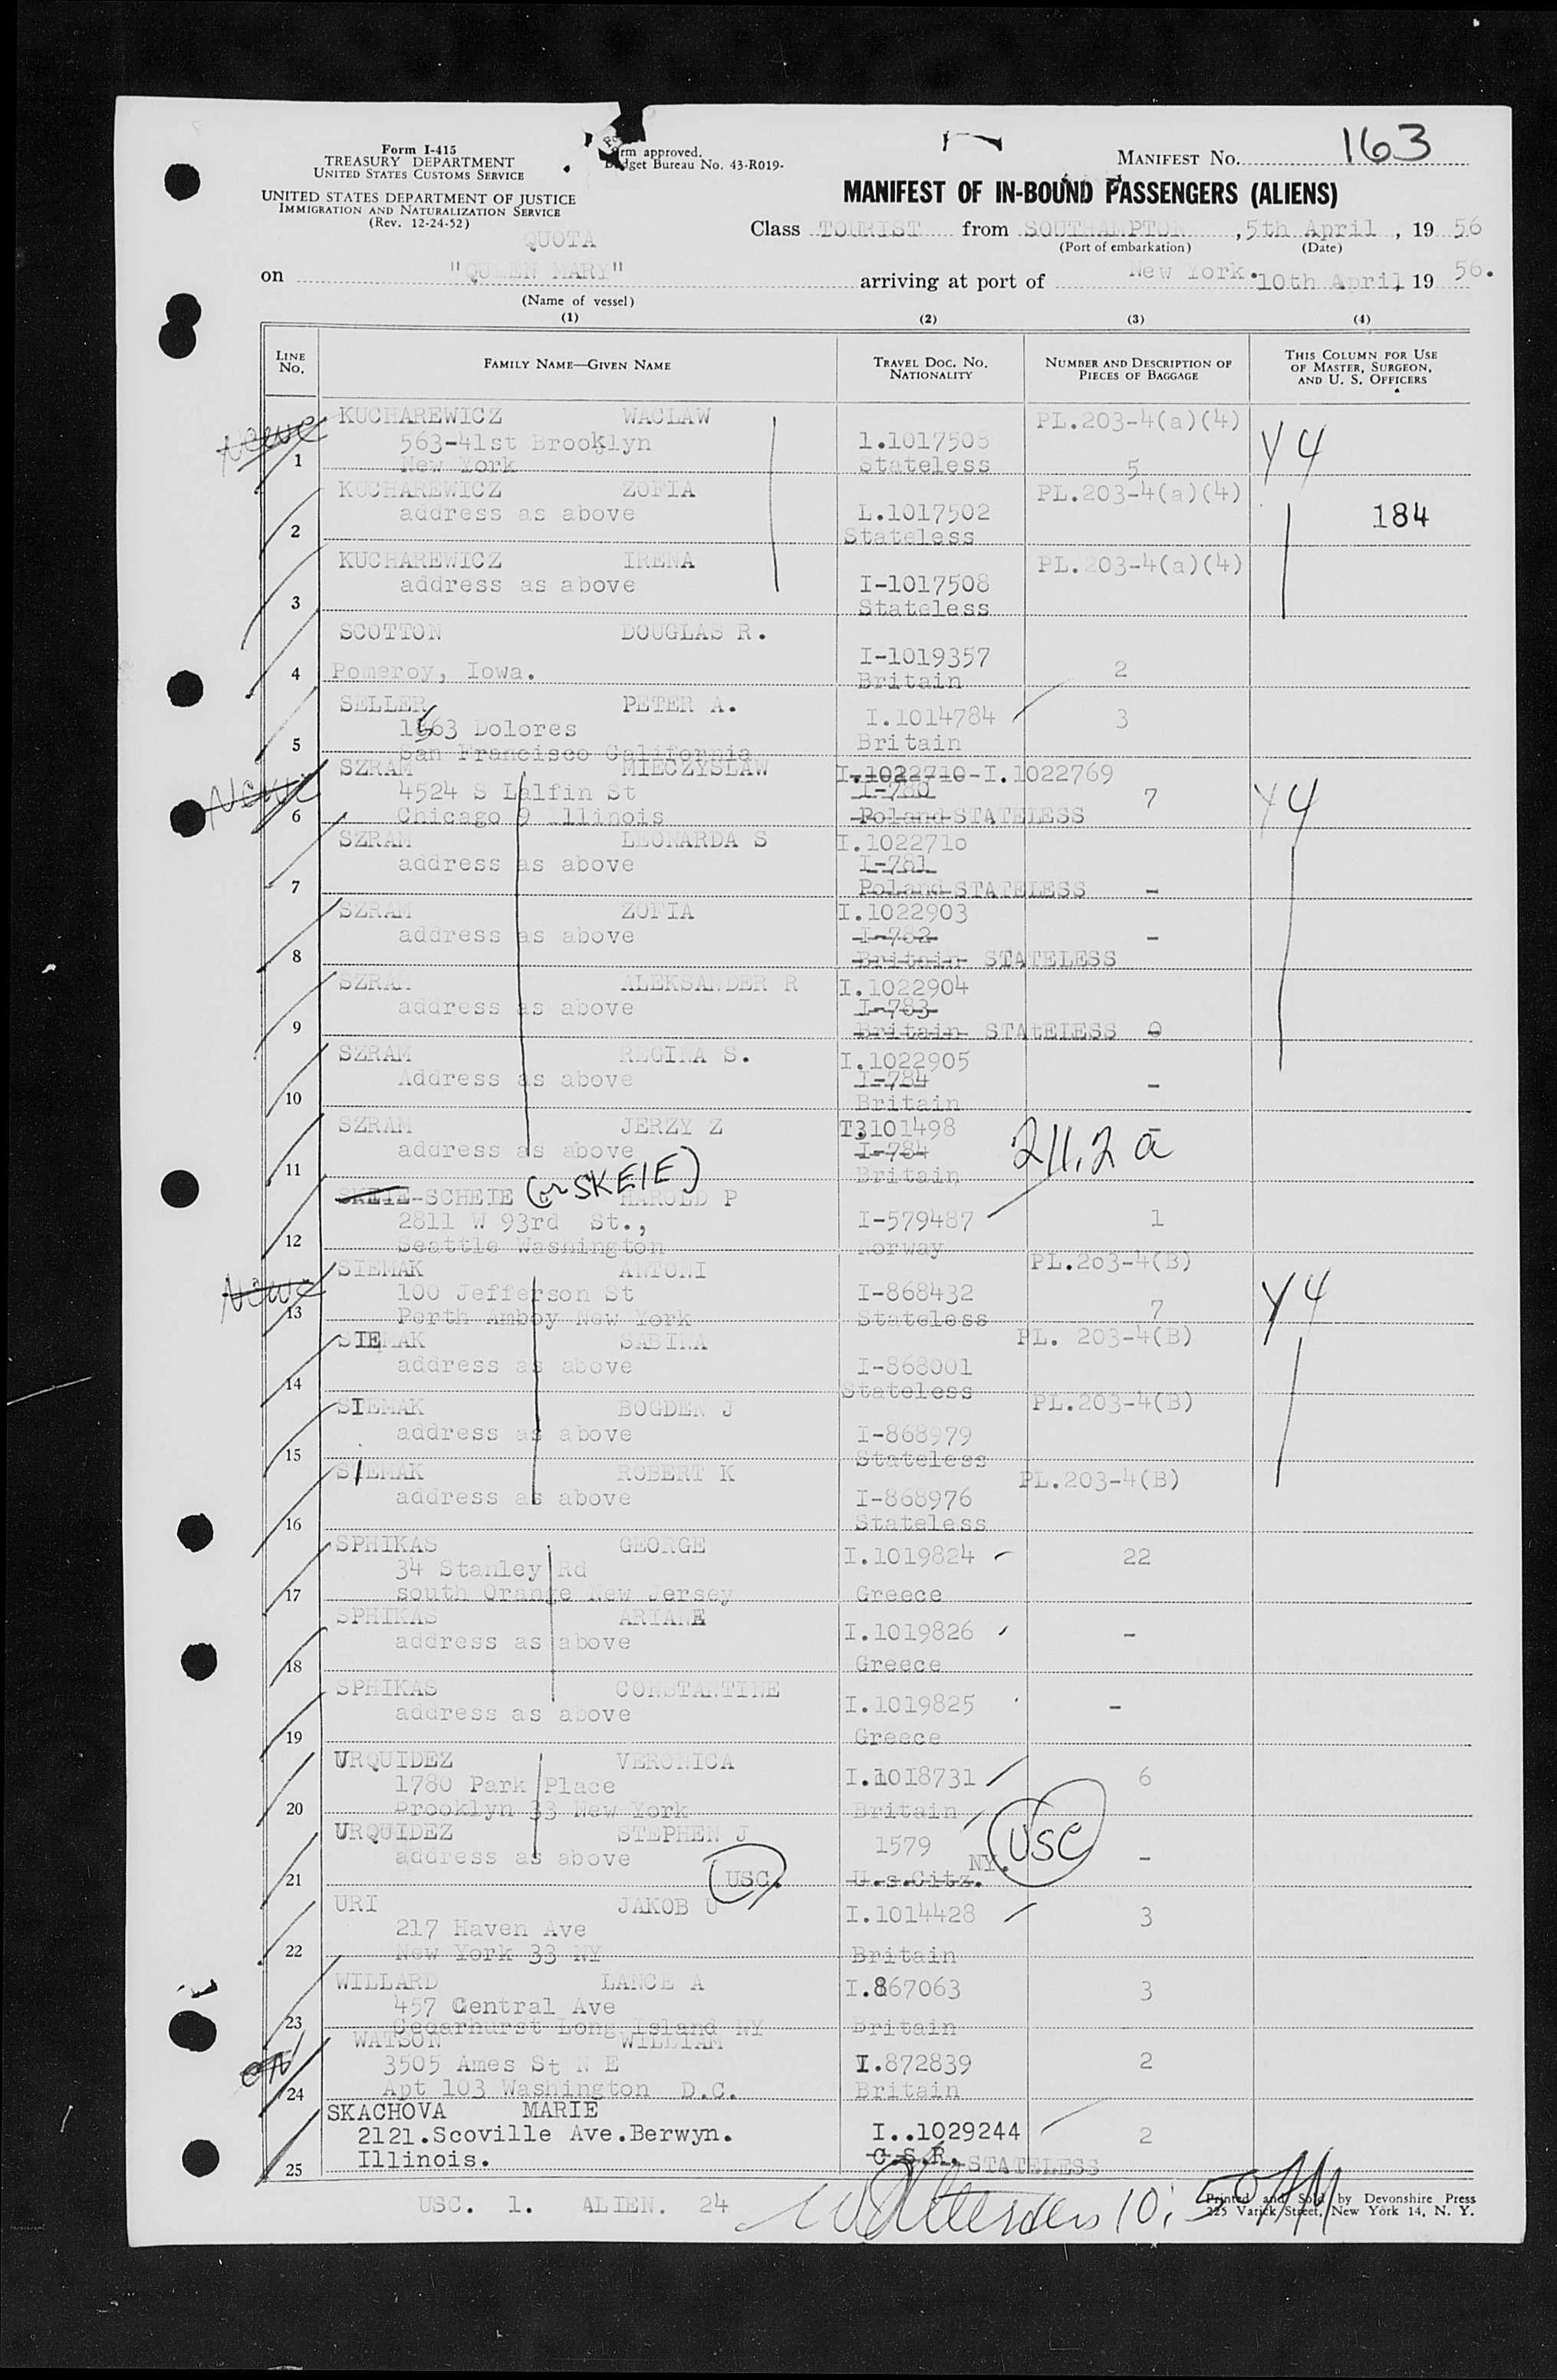 163
Form I-415
TREASURY DEPARTMENT
UNITED STATES CUSTOMS SERVICE
Form approved.
Budget Bureau No. 43-R019-
MANIFEST NO.
UNITED STATES DEPARTMENT OF JUSTICE
IMMIGRATION AND NATURALIZATION SERVICE
(Rev. 12-24-52)
MANIFEST OF IN-BOUND PASSENGERS (ALIENS)
QUOTA
Class TOURIST from SOUTHAMPTON, 5th April, 19 56
(Port of embarkation) (Date)
on "QUEEN MARY" arriving at port of New York. 10th April, 19 56.
(Name of vessel)
(1) (2) (3) (4)
LINE No. FAMILY NAME—GIVEN NAME TRAVEL DOC. NO. NATIONALITY NUMBER AND DESCRIPTION OF PIECES OF BAGGAGE THIS COLUMN FOR USE OF MASTER, SURGEON, AND U. S. OFFICERS
KUCHAREWICZ WACLAW PL.203-4(a)(4)
563-41st Brooklyn 1.1017503 Y4
1 New York Stateless 5
KUCHAREWICZ ZOFIA PL.203-4(a)(4)
address as above L.1017502 184
2 Stateless
KUCHAREWICZ IRENA PL.203-4(a)(4)
address as above I-1017508
3 Stateless
SCOTTON DOUGLAS R.
I-1019357
4 Pomeroy, Iowa. Britain 2
SELLER PETER A. I.1014784 3
1563 Dolores
5 San Francisco California Britain
SZRAM MIECZYSLAW I.1022710-I.1022769
4524 S Lalfin St I-780 7 Y4
6 Chicago 9 Illinois Poland STATELESS
SZRAM LEONARDA S I.1022710
address as above I-781
7 Poland STATELESS -
SZRAM ZOFIA I.1022903
address as above I-782 -
8 Britain STATELESS
SZRAM ALEKSANDER R I.1022904
address as above I-783
9 Britain STAtELESS 0
SZRAM REGINA S. I.1022905
Address as above I-784 -
10 Britain
SZRAM JERZY Z I3101498
address as above I-784 211.2 a
11 Britain
SKEIE-SCHEIE (or SKEIE) HAROLD P
2811 W 93rd St., I-579487 1
12 Seattle Washington Norway
SIEMAK ANTONI PL.203-4(B)
100 Jefferson St I-868432 Y4
13 Perth Amboy New York Stateless 7
SIEMAK SABINA PL. 203-4(B)
address as above I-868001
14 Stateless
SIEMAK BOGDEN J PL.203-4(B)
address as above I-868979
15 Stateless
SIEMAK ROBERT K PL.203-4(B)
address as above I-868976
16 Stateless
SPHIKAS GEORGE I.1019824 22
34 Stanley Rd
17 south Orange New Jersey Greece
SPHIKAS ARIANE
address as above I.1019826 -
18 Greece
SPHIKAS CONSTANTINE I.1019825 -
address as above
19 Greece
URQUIDEZ VERONICA
1780 Park Place I.1018731 6
20 Brooklyn 33 New York Britain
URQUIDEZ STEPHEN J 1579 USC
address as above NY. -
21 USC. U.s.Citz.
URI JAKOB U I.1014428 3
217 Haven Ave
22 New York 33 NY Britain
WILLARD LANCE A I.867063 3
457 Central Ave
23 Cedarhurst Long Island NY Britain
WATSON WILLIAM
3505 Ames St N E I.872839 2
24 Apt 103 Washington D.C. Britain
SKACHOVA MARIE
2121.Scoville Ave.Berwyn. I..1029244 2
25 Illinois. C.S.R. STATELESS
USC. 1. ALIEN. 24
10:50
Printed and Sold by Devonshire Press
225 Varick Street, New York 14, N. Y.